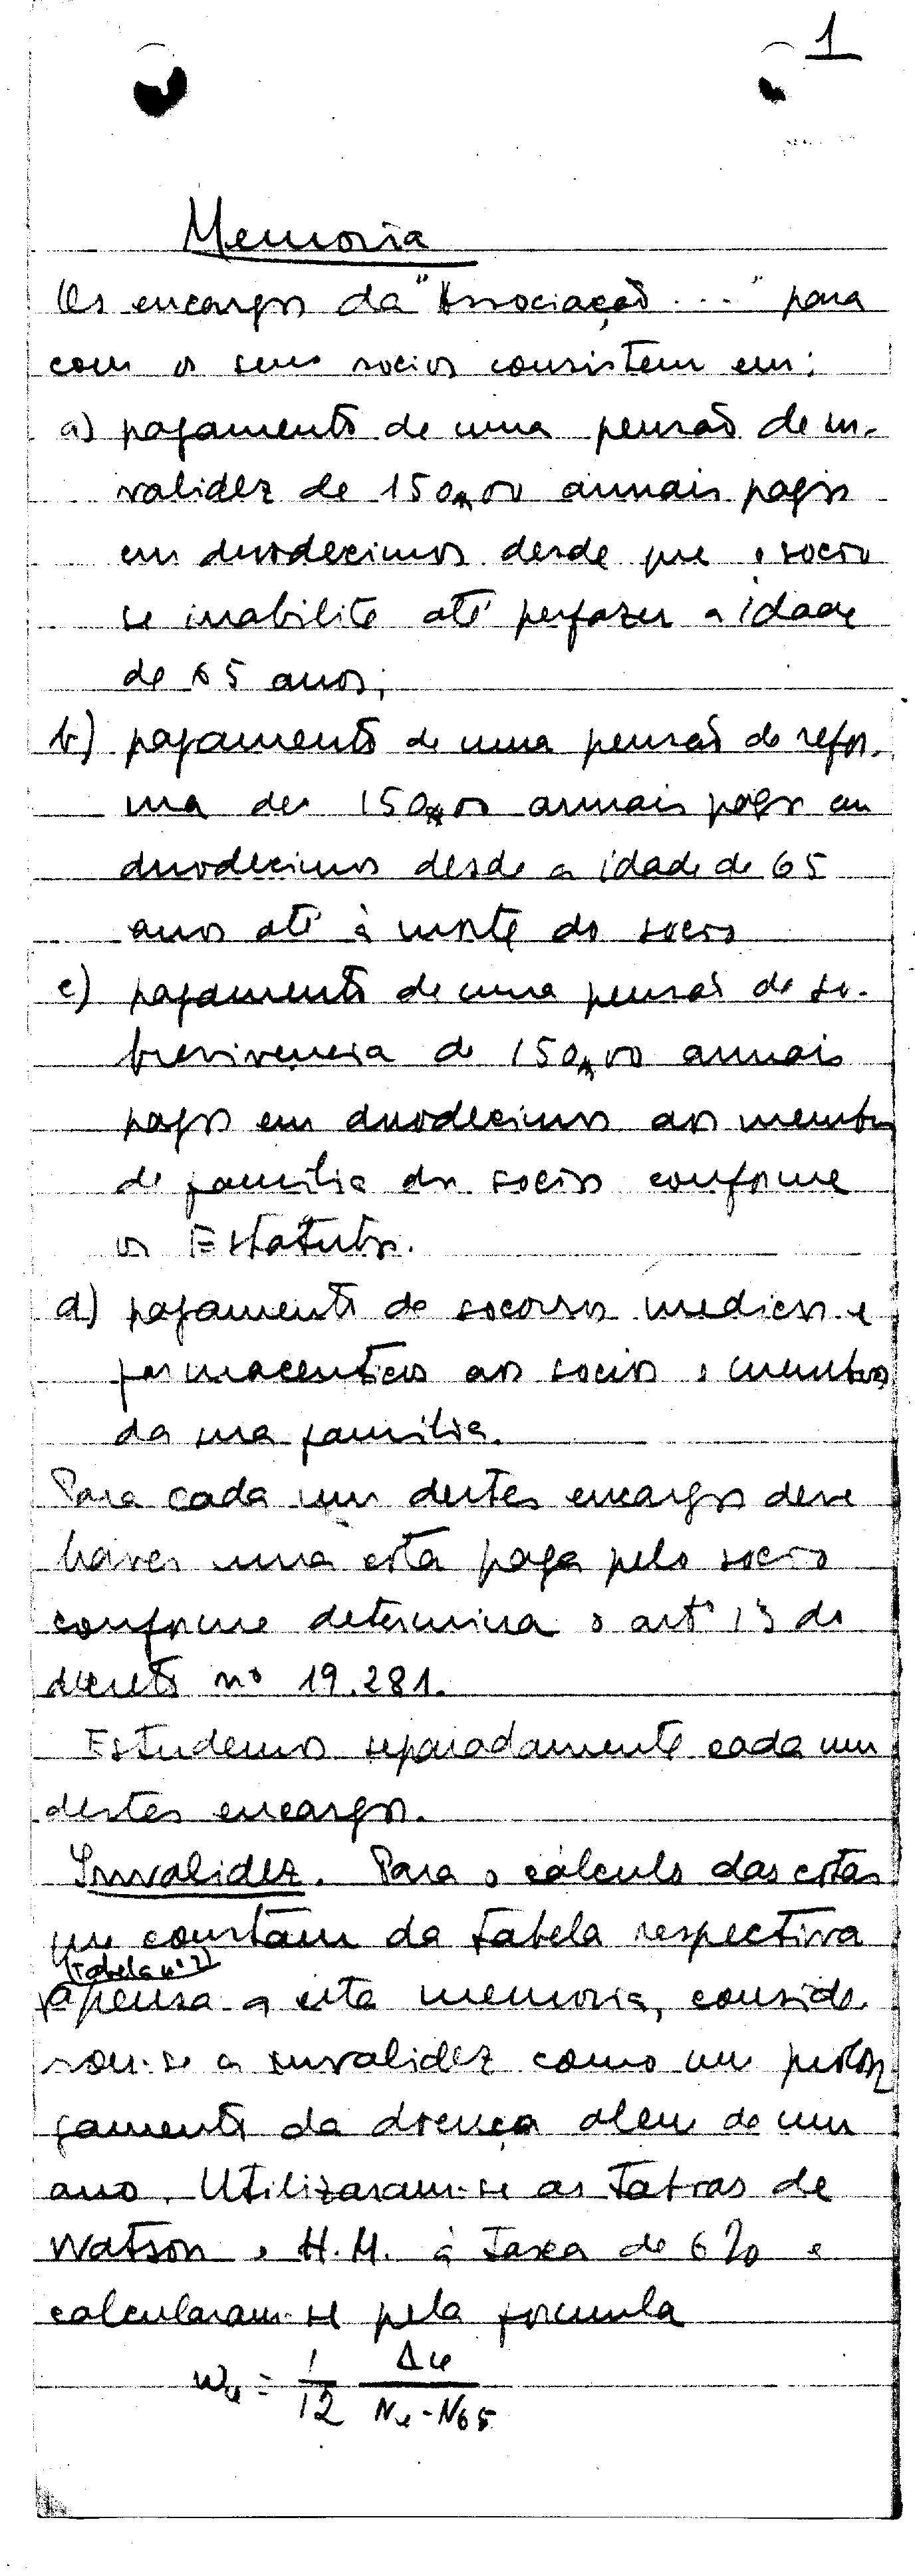 1
Memoria
Os encargos da "Associação ..." para
com os seus socios consistem em:
a) pagamento de uma pensão de in-
validez de 150$00 anuais pagos
em duodecimos desde que o socio
se inabilite até perfazer a idade
de 65 anos;
b) pagamento de uma pensão de refor-
ma de 150$00 anuais pagos em
duodecimos desde a idade de 65
anos até à morte do socio
c) pagamento de uma pensão de so-
brevivencia de 150$00 anuais
pagos em duodecimos aos membros
de familia dos socios conforme
os Estatutos.
d) pagamento de socorros medicos e
farmaceuticos aos socios e membros
da sua familia.
Para cada um destes encargos deve
haver uma cota paga pelo socio
conforme determina o artº 13 do
decreto nº 19.281.
Estudemos separadamente cada um
destes encargos.
Invalidez. Para o cálculo das cotas
que constam da tabela respectiva
(Tabela nº 2)
apensa a esta memoria, conside-
rou-se a invalidez como um prolon-
gamento da doença alem de um
ano. Utilizaram-se as Tabuas de
Watson e H.M. à Taxa de 6% e
calcularam-se pela formula